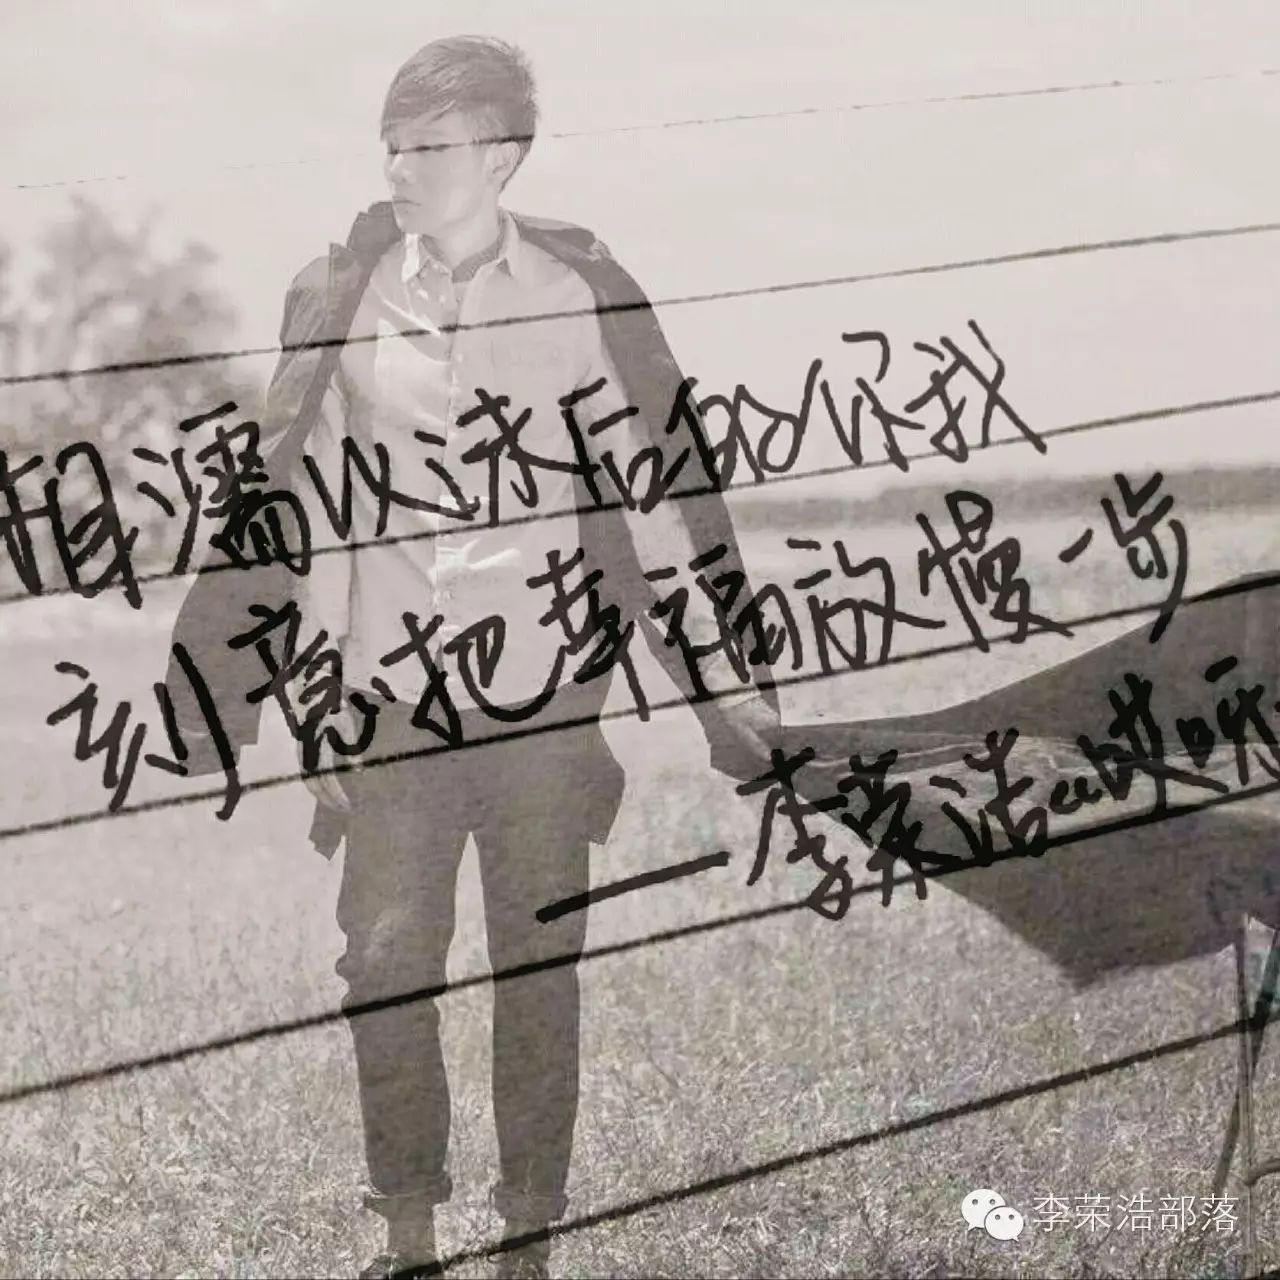 相濡以沫后的你我
刻意把幸福放慢一步
——李荣浩《哎呀
李荣浩部落